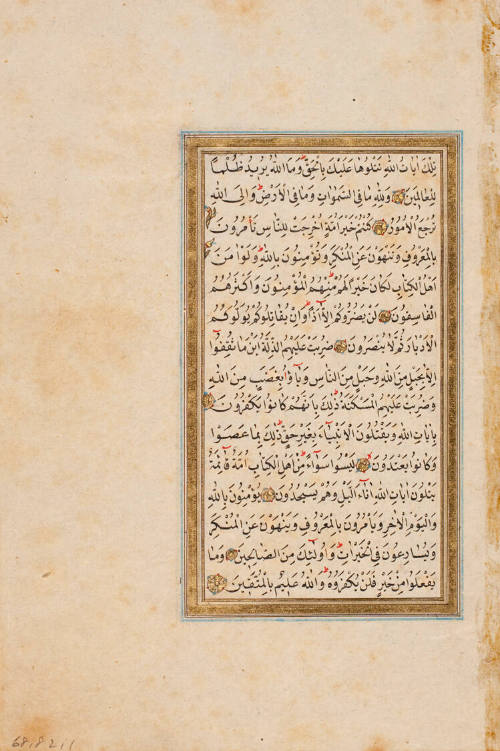 تِلْكَ اٰيَاتُ اللّٰهِ نَتْلُوهَا عَلَيْكَ بِالْحَقِّ وَمَا اللّٰهُ يُرِيدُ ظُلْمًا
لِلْعَالَمِينَ وَلِلّٰهِ مَا فِي السَّمٰوَاتِ وَمَا فِي الْاَرْضِ وَاِلَى اللّٰهِ
تُرْجَعُ الْاُمُورُ كُنْتُمْ خَيْرَ اُمَّةٍ اُخْرِجَتْ لِلنَّاسِ تَأْمُرُونَ
بِالْمَعْرُوفِ وَتَنْهَوْنَ عَنِ الْمُنْكَرِ وَتُؤْمِنُونَ بِاللّٰهِ وَلَوْ اٰمَنَ
اَهْلُ الْكِتَابِ لَكَانَ خَيْرًا لَهُمْ مِنْهُمُ الْمُؤْمِنُونَ وَاَكْثَرُهُمُ
الْفَاسِقُونَ لَنْ يَضُرُّوكُمْ اِلَّا اَذًى وَاِنْ يُقَاتِلُوكُمْ يُوَلُّوكُمُ
الْاَدْبَارَ ثُمَّ لَا يُنْصَرُونَ ضُرِبَتْ عَلَيْهِمُ الذِّلَّةُ اَيْنَ مَا ثُقِفُوا
اِلَّا بِحَبْلٍ مِنَ اللّٰهِ وَحَبْلٍ مِنَ النَّاسِ وَبَاؤُ بِغَضَبٍ مِنَ اللّٰهِ
وَضُرِبَتْ عَلَيْهِمُ الْمَسْكَنَةُ ذٰلِكَ بِاَنَّهُمْ كَانُوا يَكْفُرُونَ
بِاٰيَاتِ اللّٰهِ وَيَقْتُلُونَ الْاَنْبِيَاءَ بِغَيْرِ حَقٍّ ذٰلِكَ بِمَا عَصَوْا
وَكَانُوا يَعْتَدُونَ لَيْسُوا سَوَاءً مِنْ اَهْلِ الْكِتَابِ اُمَّةٌ قَائِمَةٌ
يَتْلُونَ اٰيَاتِ اللّٰهِ اٰنَاءَ الَّيْلِ وَهُمْ يَسْجُدُونَ يُؤْمِنُونَ بِاللّٰهِ
وَالْيَوْمِ الْاٰخِرِ وَيَأْمُرُونَ بِالْمَعْرُوفِ وَيَنْهَوْنَ عَنِ الْمُنْكَرِ
وَيُسَارِعُونَ فِي الْخَيْرَاتِ وَاُولٰئِكَ مِنَ الصَّالِحِينَ وَمَا
يَفْعَلُوا مِنْ خَيْرٍ فَلَنْ يُكْفَرُوهُ وَاللّٰهُ عَلِيمٌ بِالْمُتَّقِينَ
68.82.1